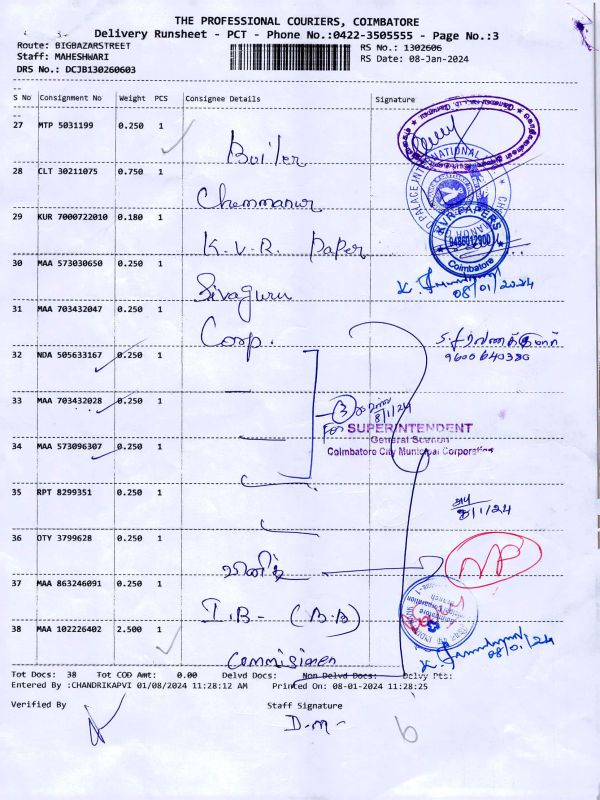 THE PROFESSIONAL COURIERS, COIMBATORE
Delivery Runsheet - PCT - Phone No.:0422-3505555 - Page No.:3
Route: BIGBAZARSTREET
RS No.: 1302606
Staff: MAHESHWARI
RS Date: 08-Jan-2024
DRS No.: DCJB130260603
S No Consignment No Weight PCS Consignee Details Signature
27 MTP 5031199 0.250 1
Boiler
28 CLT 30211075 0.750 1
Chemmanur
29 KUR 7000722010 0.180 1
K.V.R. Paper
KVR PAPERS
9486012900
Coimbatore
30 MAA 573030650 0.250 1
Sivaguru
08/01/2024
31 MAA 703432047 0.250 1
Corp.
9600640380
32 NDA 505633167 0.250 1
33 MAA 703432028 0.250 1
3
8/1/24
For SUPERINTENDENT
General Section
Coimbatore City Municipal Corporation
34 MAA 573096307 0.250 1
35 RPT 8299351 0.250 1
8/1/24
36 OTY 3799628 0.250 1
37 MAA 863246091 0.250 1
I.B- (B.B)
38 MAA 102226402 2.500 1
08/01/24
Commisimen
Tot Docs: 38 Tot COD Amt: 0.00 Delvd Docs: Non Delvd Docs: Delvy Pts:
Entered By :CHANDRIKAPVI 01/08/2024 11:28:12 AM Printed On: 08-01-2024 11:28:25
Verified By Staff Signature
D.M-
6